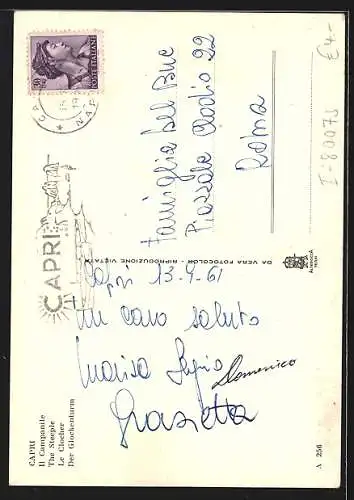 CAPRI
Il Campanile
The Steeple
Le Clocher
Der Glockenturm
CAPRI
30
POSTE ITALIANE
Capri 13-4-61
Un caro saluto
Marisa
Domenico
Graziella
DA VERA FOTOCOLOR - RIPRODUZIONE VIETATA
Famiglia Del Buc
Piazzale Clodio 22
Roma
A 256
I-80073
€ 4-